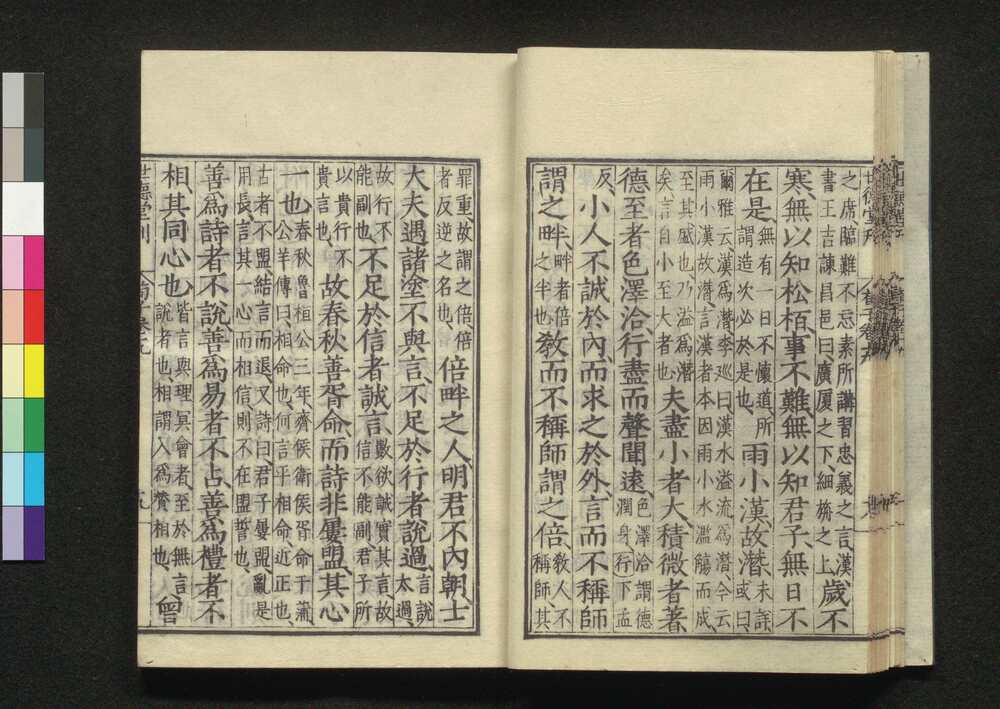 之席臨難不忘素所講習忠義之言漢書王吉諫昌邑曰廣厦之下細旃之上歲不
寒無以知松栢事不難無以知君子無日不
在是無有一日不懷道所謂造次必於是也雨小漢故潛未詳或曰
爾雅云漢爲潛李巡曰漢水溢流爲潛今云雨小漢故潛言漢者本因雨小水濫觴而成
至其盛也乃溢爲潛矣言自小至大者也夫盡小者大積微者著
德至者色澤洽行盡而聲聞遠色澤洽謂德潤身行下孟
反小人不誠於內而求之於外言而不稱師
謂之畔畔者倍之半也敎而不稱師謂之倍敎人不稱師其
罪重故謂之倍倍者反逆之名也倍畔之人明君不內朝士
大夫遇諸塗不與言不足於行者說過言說太過
故行不能副也不足於信者誠言數欲誠實其言故信不能副君子所
以貴行不貴言也故春秋善胥命而詩非屢盟其心
一也春秋魯桓公三年齊侯衛侯胥命于蒲公羊傳曰相命也何言乎相命近正也
古者不盟結言而退又詩曰君子屢盟亂是用長言其一心而相信則不在盟誓也
善爲詩者不說善爲易者不占善爲禮者不
相其同心也皆言與理冥會者至於無言說者也相謂入爲賛相也曾
世德堂刊